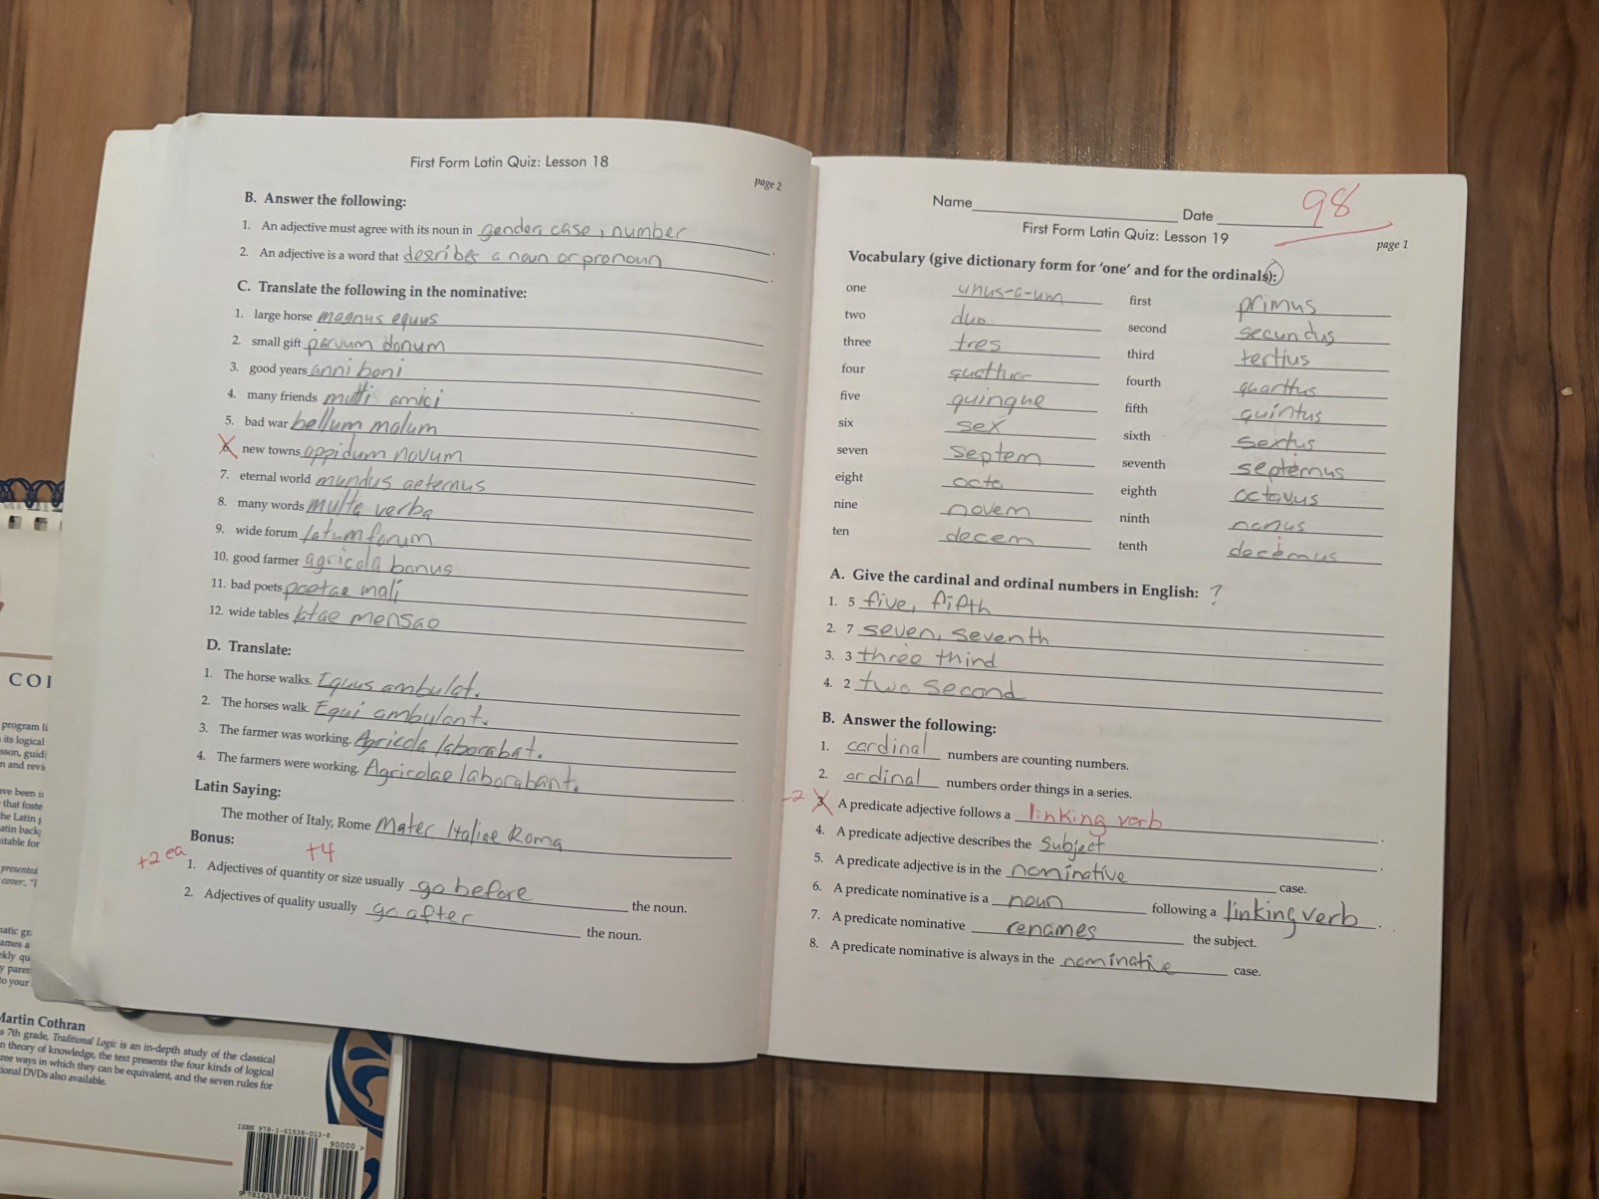 First Form Latin Quiz: Lesson 18
page 2
B. Answer the following:
1. An adjective must agree with its noun in gender, case, number.
2. An adjective is a word that describes a noun or pronoun.
C. Translate the following in the nominative:
1. large horse magnus equus
2. small gift parvum donum
3. good years anni boni
4. many friends multi amici
5. bad war bellum malum
6. new towns oppidum novum
7. eternal world mundus aeternus
8. many words multa verba
9. wide forum latum forum
10. good farmer agricola bonus
11. bad poets poetae mali
12. wide tables latae mensae
D. Translate:
1. The horse walks. Equus ambulat.
2. The horses walk. Equi ambulant.
3. The farmer was working. Agricola laborabat.
4. The farmers were working. Agricolae laborabant.
Latin Saying:
The mother of Italy, Rome Mater Italiae Roma
Bonus:
+2 ea +4
1. Adjectives of quantity or size usually go before the noun.
2. Adjectives of quality usually go after the noun.
98
Name Date
First Form Latin Quiz: Lesson 19
page 1
Vocabulary (give dictionary form for 'one' and for the ordinals):
one unus-a-um first primus
two duo second secundus
three tres third tertius
four fourth quarttus
five quinque fifth quintus
six sex sixth sextus
seven septem seventh septemus
eight octo eighth octavus
nine novem ninth nonus
ten decem tenth decemus
A. Give the cardinal and ordinal numbers in English: ?
1. 5 five, fifth
2. 7 seven, seventh
3. 3 three third
4. 2 two second
B. Answer the following:
1. cardinal numbers are counting numbers.
2. ordinal numbers order things in a series.
-2 3. A predicate adjective follows a linking verb.
4. A predicate adjective describes the subject.
5. A predicate adjective is in the nominative case.
6. A predicate nominative is a noun following a linking verb.
7. A predicate nominative renames the subject.
8. A predicate nominative is always in the nominative case.
COI
program li
its logical
sson, guidi
n and revie
ve been u
that foste
he Latin
atin back
itable for
presented
cover, "I
matic gr
ames a
kly qu
y paren
o your
Martin Cothran
s 7th grade, Traditional Logic is an in-depth study of the classical
n theory of knowledge, the text presents the four kinds of logical
ree ways in which they can be equivalent, and the seven rules for
ional DVDs also available.
ISBN 978-1-61538-013-8
90000 >